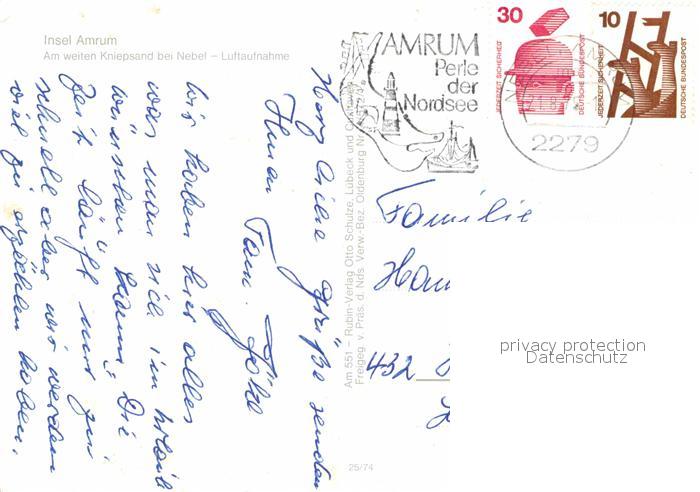 Insel Amrum
Am weiten Kniepsand bei Nebel – Luftaufnahme
Herzliche Grüße senden
Ihnen Fam.
wir haben hier alles
was man sich im Urlaub
wünschen kann, Die
Zeit läuft nur zu
schnell aber wir werden
viel zu erzählen haben.
Am 551 – Rubin-Verlag Otto Schulze, Lübeck und
Freigeg. v. Präs. d. Nds. Verw.-Bez. Oldenburg
25/74
AMRUM
Perle
der
Nordsee
30
JEDERZEIT SICHERHEIT
DEUTSCHE BUNDESPOST
10
JEDERZEIT SICHERHEIT
DEUTSCHE BUNDESPOST
2279
Familie
432
privacy protection
Datenschutz